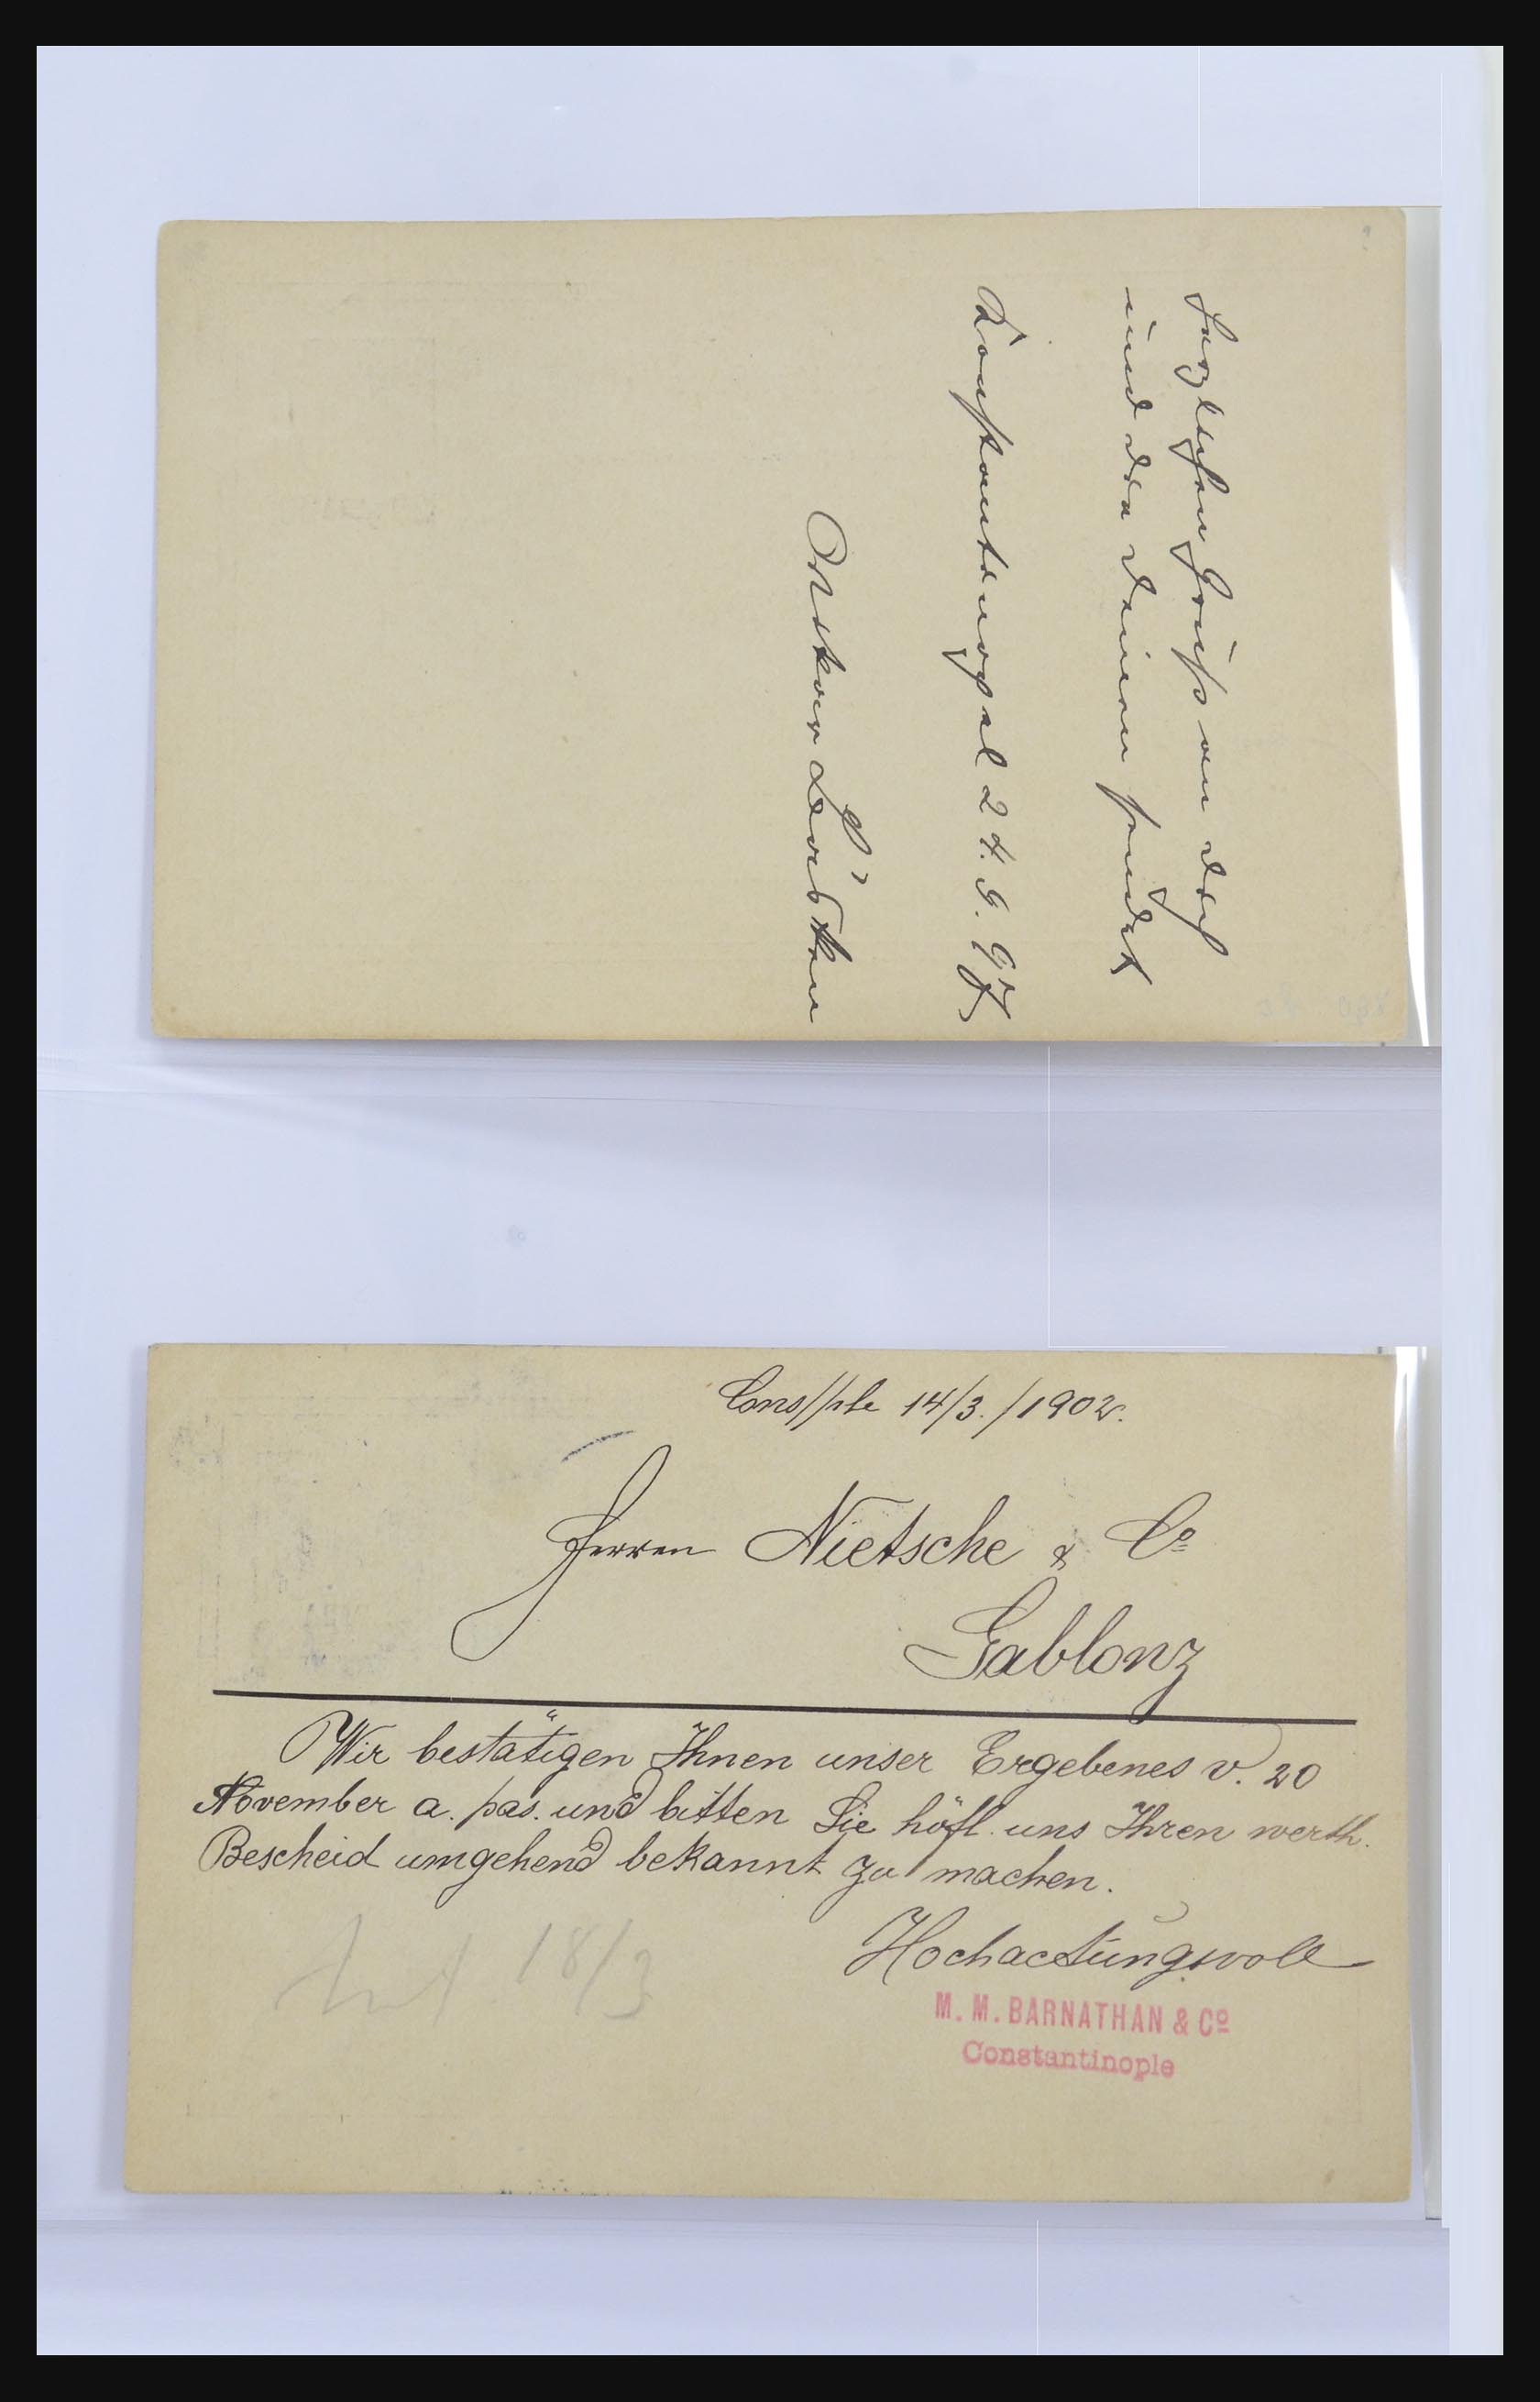 Herzlichen Gruss an dich
und die deinen sendet
Konstantinopel 24. 9. 97
Oskar
Cons/ple 14/3./1902.
Herren Nietsche & Co
Gablonz
Wir bestätigen Ihnen unser Ergebenes v. 20
November a. pas. und bitten Sie höfl. uns Ihren werth.
Bescheid umgehend bekannt zu machen.
Hochactungsvoll
18/3
M. M. BARNATHAN & Co
Constantinople